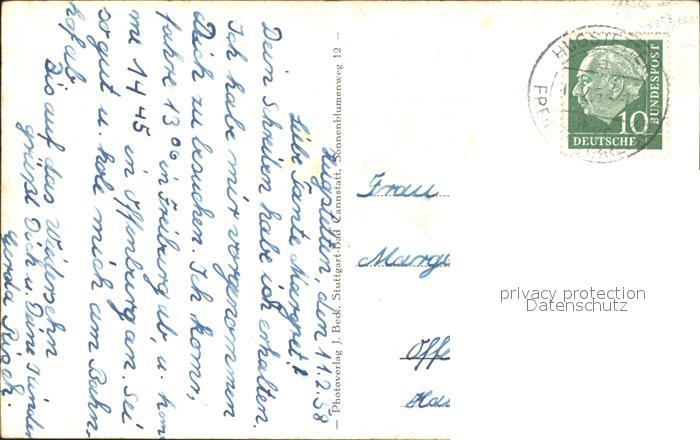 Hugstetten, den 11.2.58
Liebe Tante Margret!
Dein Schreiben habe ich erhalten.
Ich habe mir vorgenommen
Dich zu besuchen. Ich komm,
fahre 13⁰⁶ in Freiburg ab, u. kom
me 14 45 in Offenburg an. Sei
so gut u. hole mich am Bahn,
hof ab.
Bis auf das Wiedersehn
grüßt Dich u. Deine Kinder
Gerda
— Photoverlag J. Beck, Stuttgart-Bad Cannstatt, Sonnenblumenweg 12 —
Frau
Marg
Offe
HUGSTE
FRE
10
BUNDESPOST
DEUTSCHE
privacy protection
Datenschutz